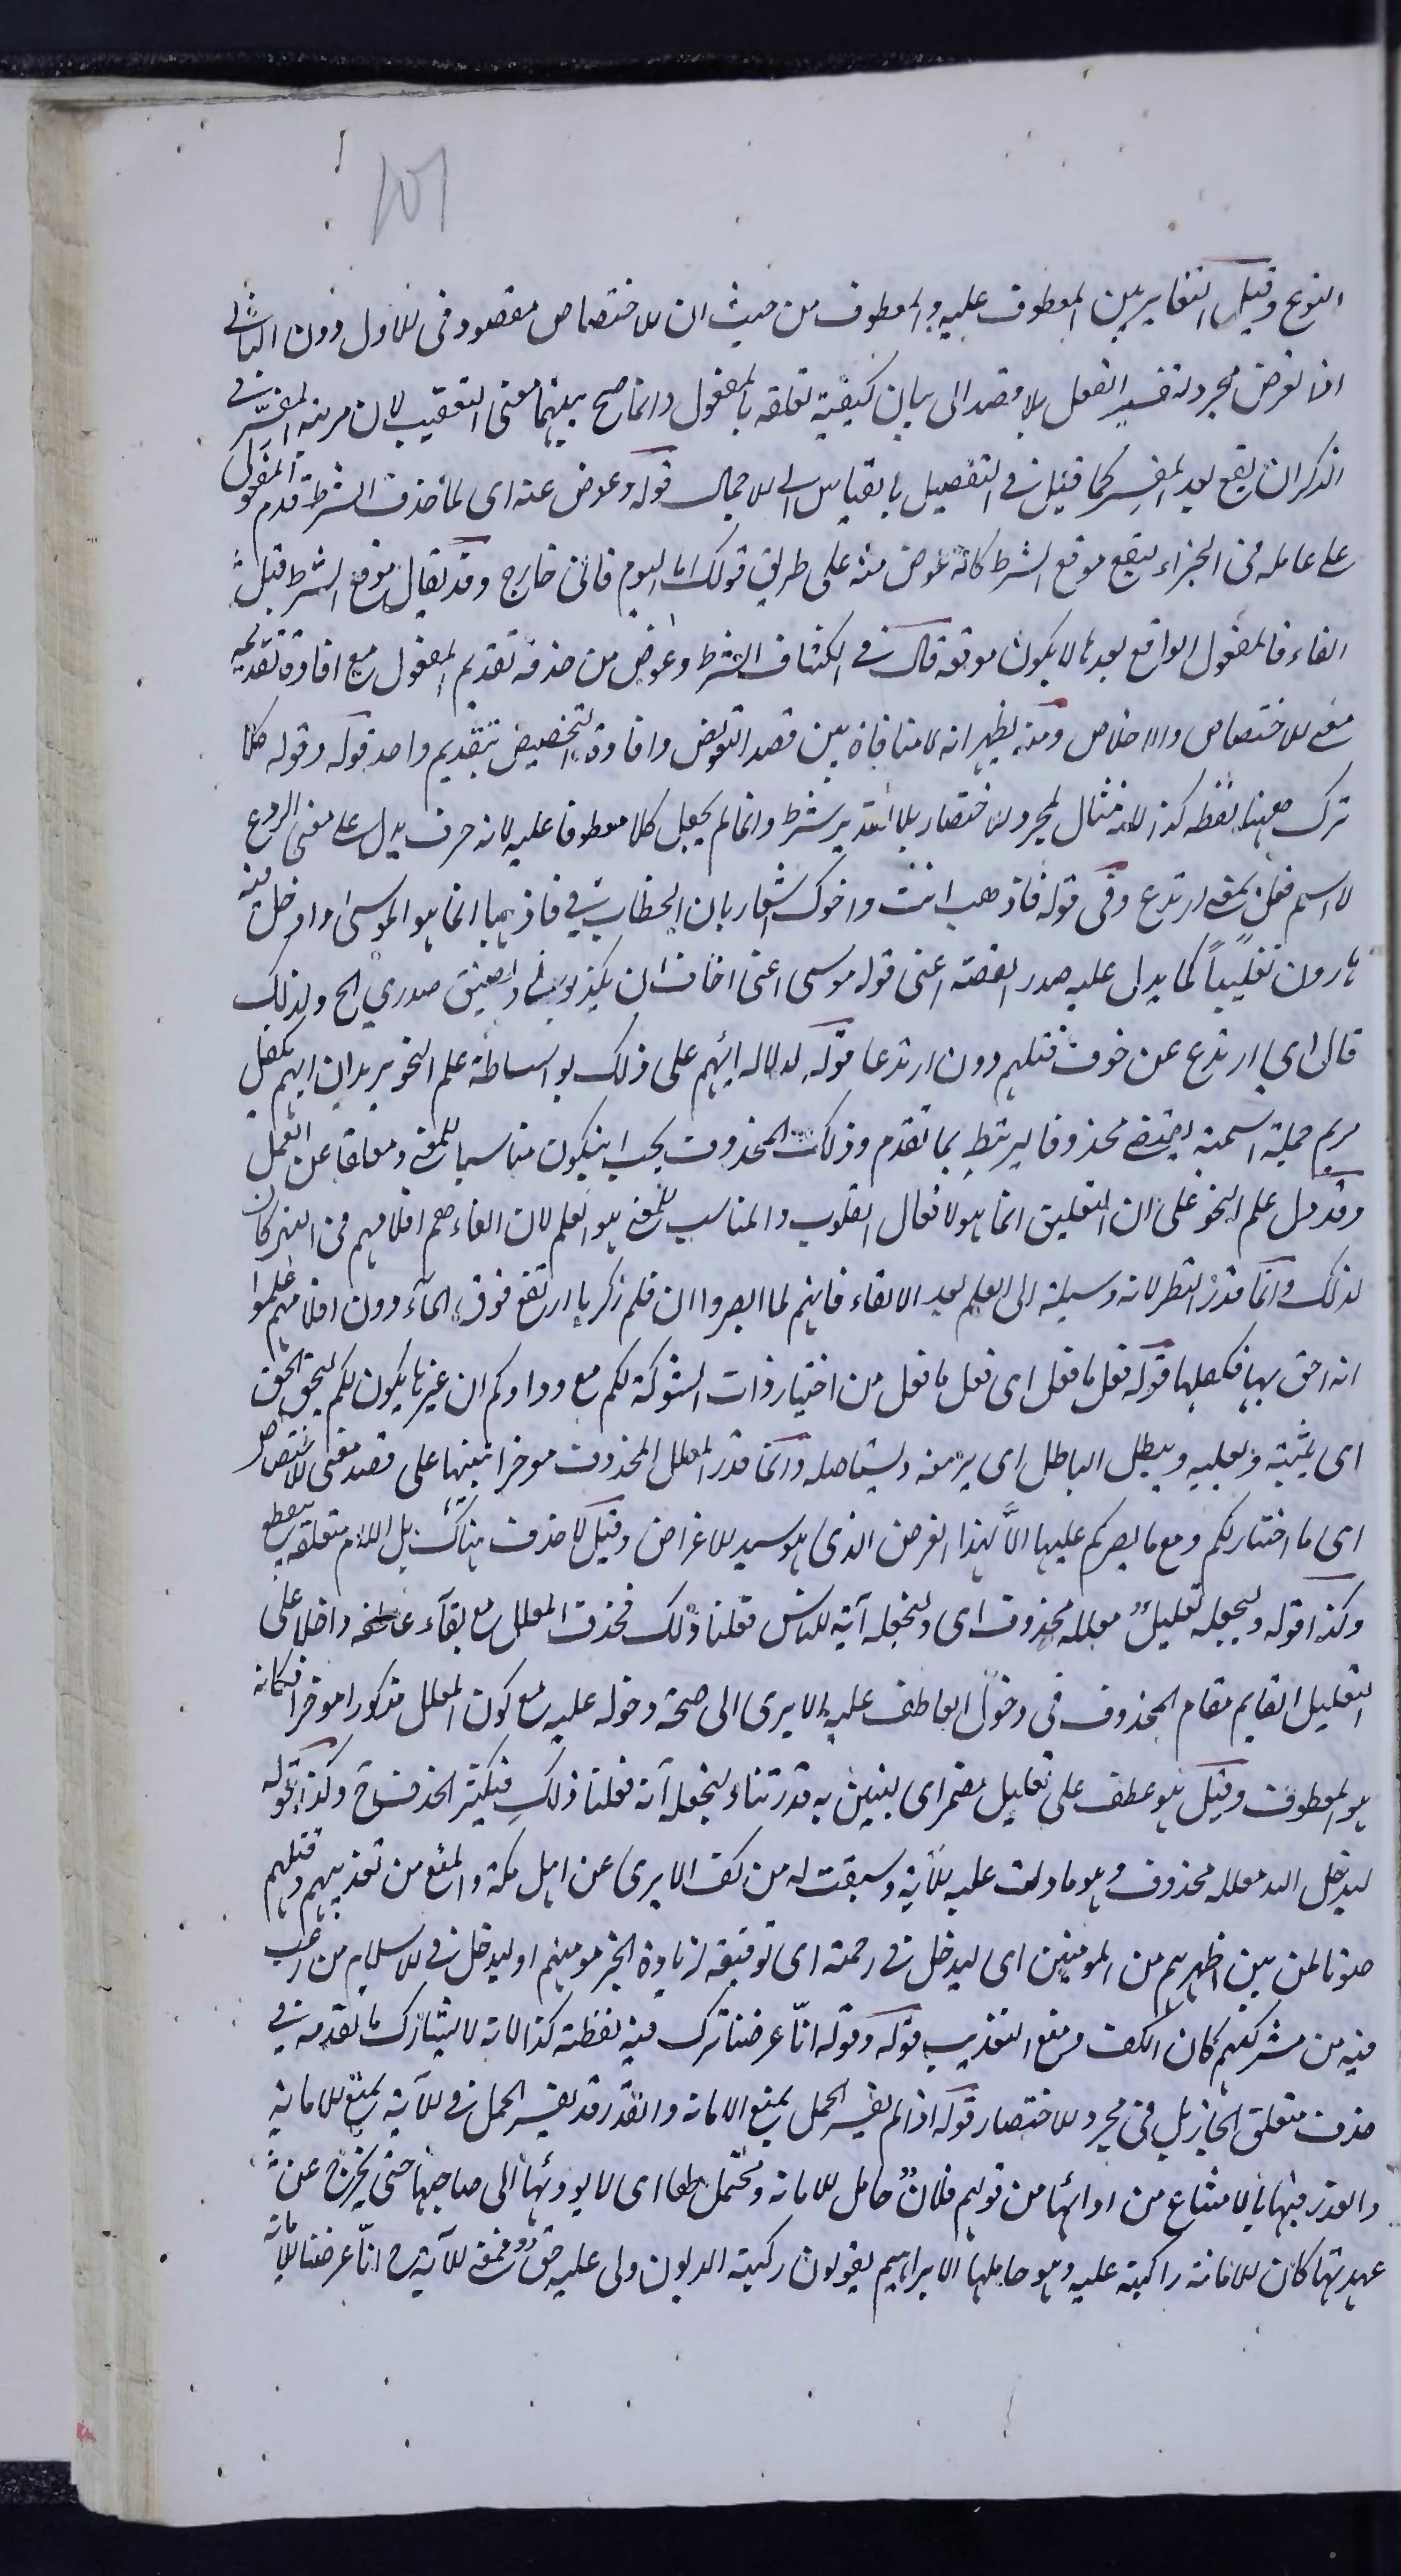 ١٥١
النوع وقيل التغاير بين المعطوف عليه والمعطوف من حيث ان للاختصاص مقصود في للاول دون الثاني
اذ الغرض مجرد تفسير الفعل بلا قصد الى بيان كيفية تعلقه بالمفعول وانما صح بينهما معنى التعقيب لان مرتبة المفسَّر في
الذكر ان يقع بعد المفسر كما قيل في التفصيل بالقياس الى للاجمال قوله وعوض عنه اى لما حذف الشرط قدم المفعول
على عامله في الجزاء ليقع موقع الشرط كانه عوض منه على طريق قولك اما اليوم فانى خارج وقد يقال موقع الشرط قبل
الفاء فالمفعول الواقع بعدها لا يكون موقعه قال في الكشاف الشرط وعوض من حذفه تقديم المفعول مع افادة تقديمه
معنى للاختصاص والاخلاص ومنه يظهر انه لا منافاة بين قصد التعويض وافادة التخصيص بتقديم واحد قوله وقوله كلا
ترك ههنا لفظه كذا لانه مثال لمجرد للاختصار بلا تقدير شرط وانما لم يجعل كلا معطوفا عليه لانه حرف يدل على معنى الردع
لا اسم فعل بمعنى ارتدع وفي قوله فاذهب انت واخوك اشعار بان الخطاب في فاذهبا انما هو لموسى وادخل فيه
هارون تغليباً كما يدل عليه صدر القصة اعنى قوله موسى اعنى اخاف ان يكذبون ويضيق صدري الخ ولذلك
قال اي ارتدع عن خوف قتلهم دون ارتدعا قوله لدلاله ايهم على ذلك بواسطة علم النحو يريد ان ايهم يكفل
مريم جملة اسمية يقتضى محذوفا ليرتبط بما تقدم وذلك المحذوف يجب ان يكون مناسبا للمعنى ومعلقا عن العمل
وقد دل علم النحو على ان التعليق انما هو لافعال القلوب والمناسب للمعنى هو العلم لان القاءهم اقلامهم في النهر كان
لذلك وانما قدر النظر لانه وسيلة الى العلم بعد الالقاء فانهم لما ابصروا ان قلم زكريا ارتفع فوق الماء دون اقلامهم علموا
انه احق بها فكفلها قوله فعل ما فعل اى فعل ما فعل من اختيار ذات الشوكة لكم مع ودادكم ان غيرها يكون لكم ليحق الحق
اى يثبته ويعليه ويبطل الباطل اى يزهقه ويستاصله وانما قدر المعلل المحذوف موخرا تنبيها على قصد معنى للاختصاص
اى ما اختار لكم وما نصركم عليها الا لهذا الغرض الذى هو سيد للاغراض وقيل لا حذف هناك بل اللام متعلقه بيقطع
وكذا قوله وليجعله تعليل معلله محذوف اى ولنجعله آية للناس فعلنا ذلك فحذف المعلل مع بقاء عاطفه داخلا على
التعليل القايم مقام المحذوف في دخول العاطف عليه الا يرى الى صحة دخوله عليه مع كون المعلل مذكورا موخرا فكانه
هو المعطوف وقيل هو عطف على تعليل مضمر اى لنبين به قدرتنا ولنجعله آية فعلنا ذلك فيكثر الحذف ح وكذا قوله
ليدخل الله معلله محذوف وهو ما دلت عليه للآية وسبقت له من كف الايدى عن اهل مكة والمنع من تعذيبهم وقتلهم
صونا لمن بين اظهرهم من المومنين اى ليدخل في رحمته اى توفيقه لزيادة الخير مومنهم او ليدخل في للاسلام من رغب
فيه من مشركيهم كان الكف ومنع التعذيب قوله وقوله انّا عرضنا ترك فيه لفظة كذا لانه لا يشارك ما تقدمه في
حذف متعلق الجار بل في مجرد للاختصار قوله اذا لم يفسر الحمل بمنع الامانه والغدر قد يفسر الحمل في للآية بمنع للامانة
والغدر فيها بالامتناع من ادائها من قولهم فلانٌ حامل للامانه ومحتمل لها اى لا يوديها الى صاحبها حتى يخرج عن
عهدتها كان للامانة راكبة عليه وهو حاملها الا يراهم يقولون ركبته الديون ولى عليه حق فمعنى للآية ح انّا عرضنا للامانة